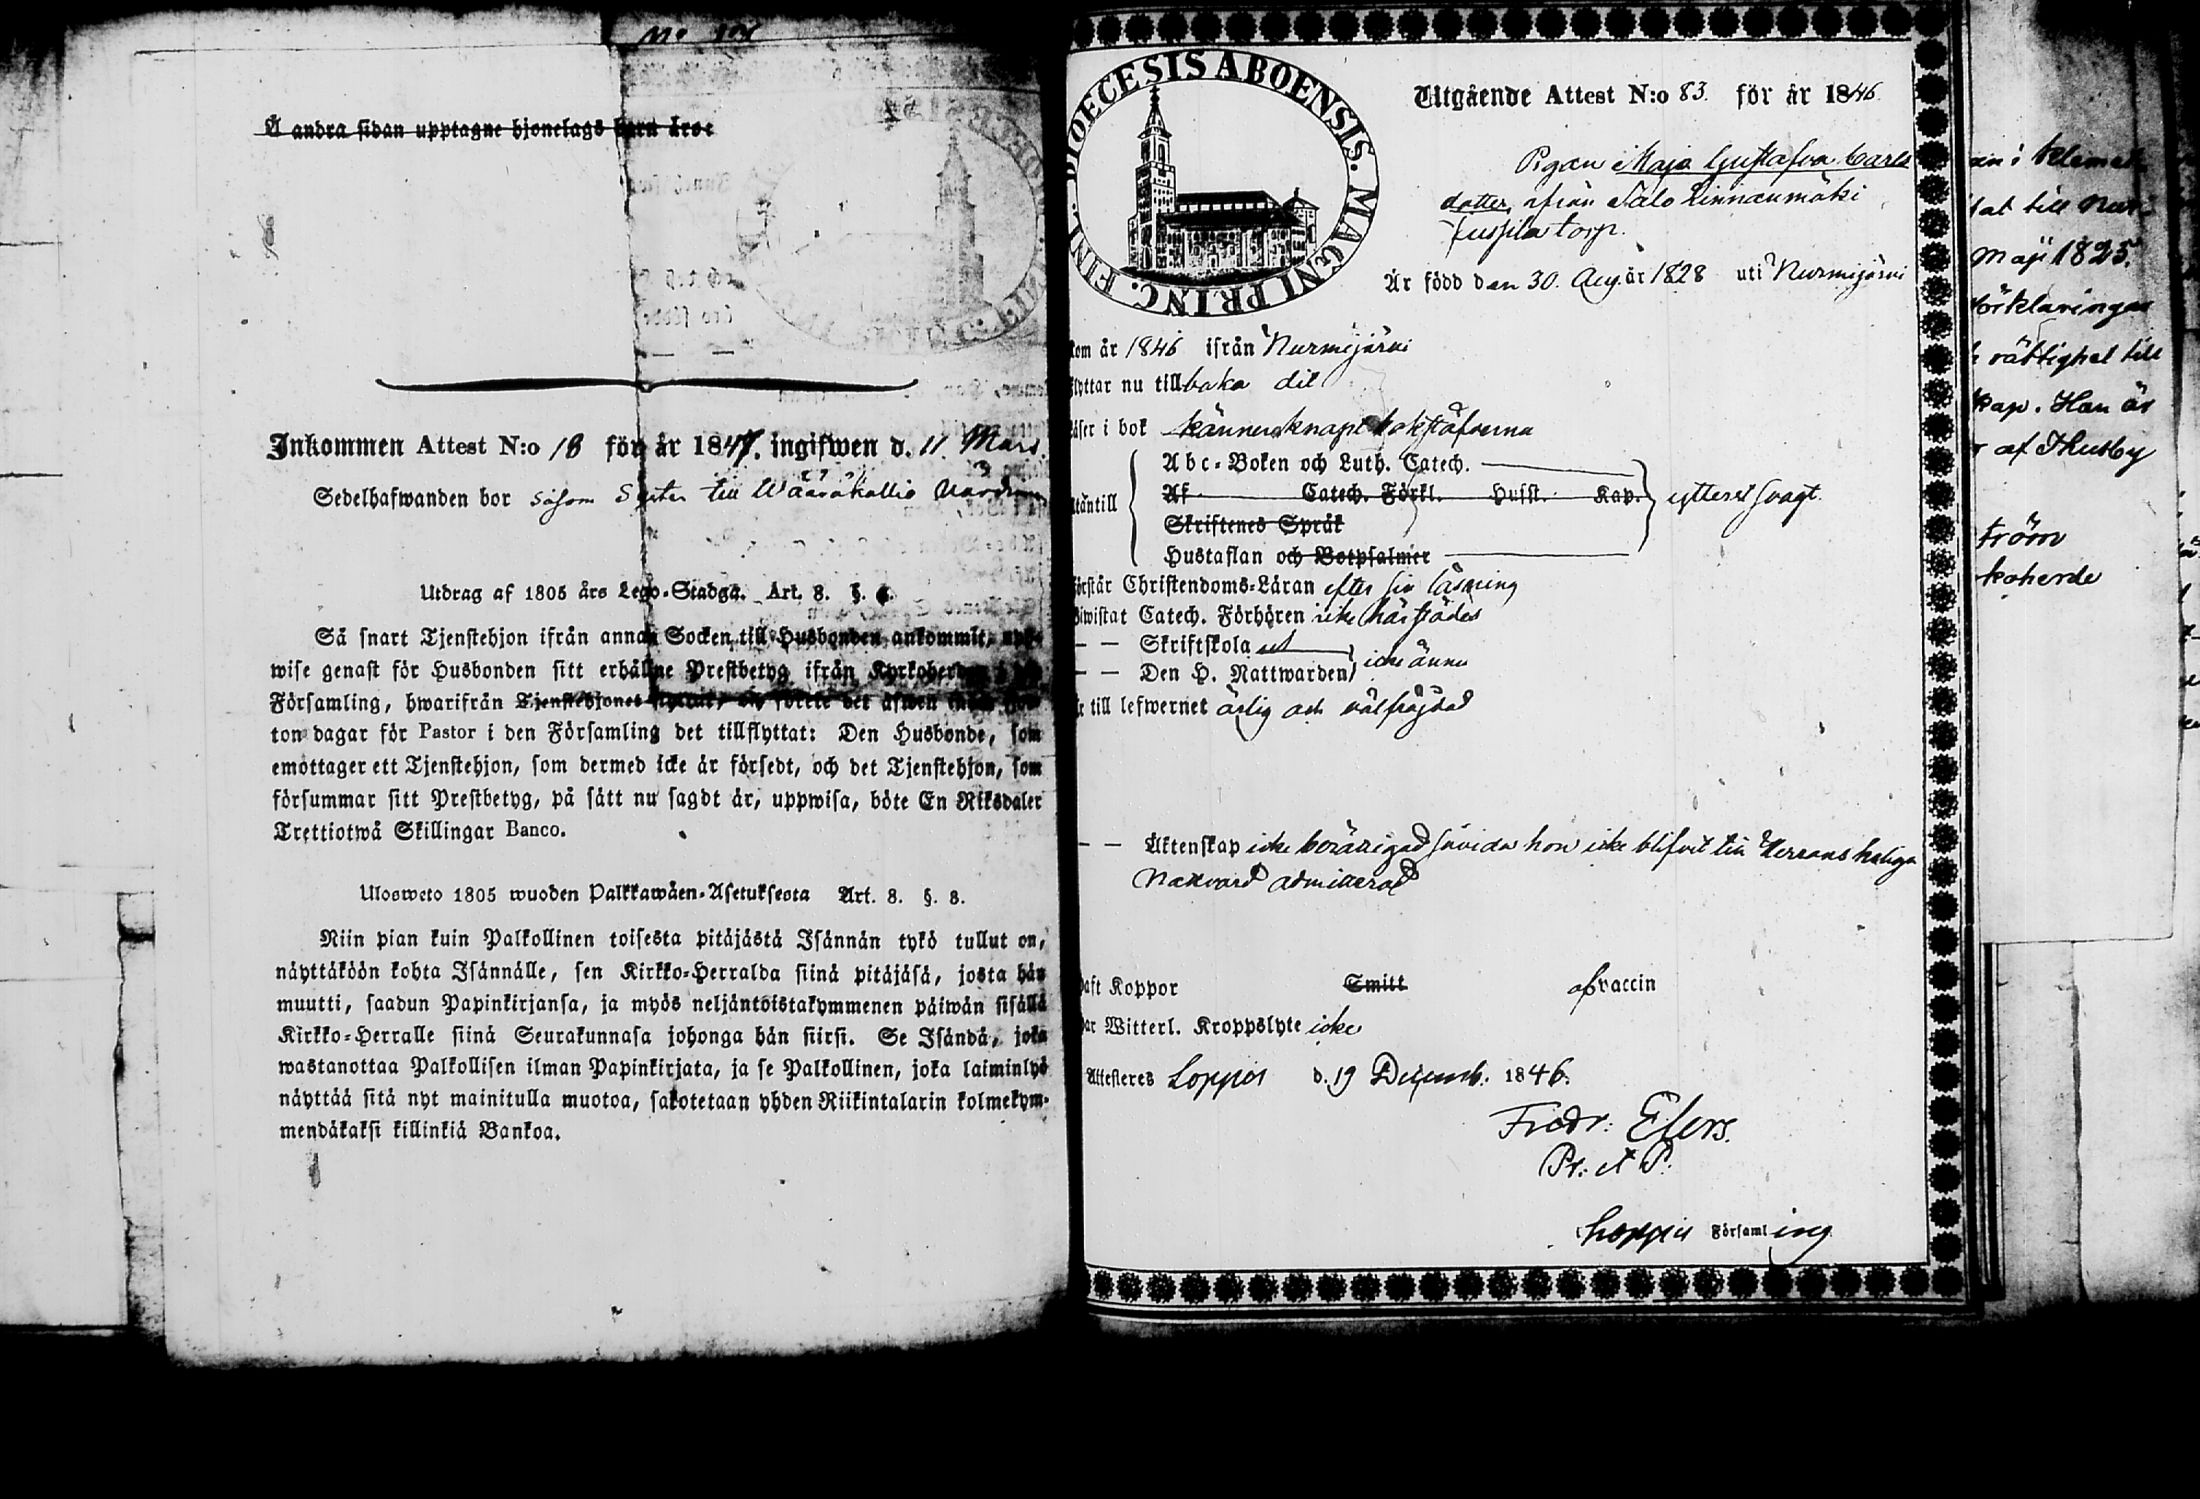 Å andra sidan upptagne hjonelags barn äro:
Inkommen Attest N:o 18 för år 1847. ingifwen d. 11 Mars
Sedelhafwanden bor såsom Syster till Waarakallio
Utdrag af 1805 års Lego-Stadga. Art. 8. §.
Så snart Tjenstehjon ifrån annan Socken till Husbonden ankommit,
wise genast för Husbonden sitt erhållne Prestbetyg ifrån Kyrkoherden
Församling, hwarifrån Tjenstehjonet flyttat, och förete det äfwen
ton dagar för Pastor i den Församling det tillflyttat: Den Husbonde, som
emottager ett Tjenstehjon, som dermed icke är försedt, och det Tjenstehjon, som
försummar sitt Prestbetyg, på sätt nu sagdt är, uppwisa, böte En Riksdaler
Trettiotwå Skillingar Banco.
Ulosweto 1805 wuoden Palkkawäen-Asetuksesta Art. 8. §. 8.
Niin pian kuin Palkollinen toisesta pitäjästä Isännän tykö tullut on,
näyttäköön kohta Isännälle, sen Kirkko-Herralda siinä pitäjäsä, josta hän
muutti, saadun Papinkirjansa, ja myös neljäntoistakymmenen päiwän sisällä
Kirkko-Herralle siinä Seurakunnasa johonga hän siirsi. Se Isändä, joka
wastanottaa Palkollisen ilman Papinkirjata, ja se Palkollinen, joka laiminlyö
näyttää sitä nyt mainitulla muotoa, sakotetaan yhden Riikintalarin kolmekym-
mendäkaksi killinkiä Bankoa.
DIOECESIS ABOENSIS. MAGNI PRINC. FINL.
Utgående Attest N:o 83. för år 1846.
Pigan Maja Gustafva Carls
dotter, ifrån Salo Linnanmäki
torp.
Är född den 30. Aug. år 1828 uti Nurmijärvi
kom år 1846 ifrån Nurmijärvi
flyttar nu tillbaka dit
läser i bok känner knapt bokstäfverna
Abc-Boken och Luth. Catech.
Af Catech. Förkl. Husst. Kap.
utantill ytterst svagt.
Skriftenes Språk
Hustaflan och Botpsalmer
förstår Christendoms-Läran efter sin läsning
biwistat Catech. Förhören icke härstädes
— — Skriftskola
— — Den H. Nattwarden icke ännu
är till lefwernet ärlig och välfräjdad
— — Äktenskap icke berättigad såvida hon icke blifvit till Herrans heliga
Nattvard admitterad
haft Koppor Smitt af vaccin
har Witterl. Kroppslyte icke
Attesteres Loppis d. 19 Decemb. 1846.
Fredr: Elers.
Pr: et P.
Loppis Församling
Maji 1825.
förklaringar
rättighet till
kap. Han är
af Thusby
tröm
koherde